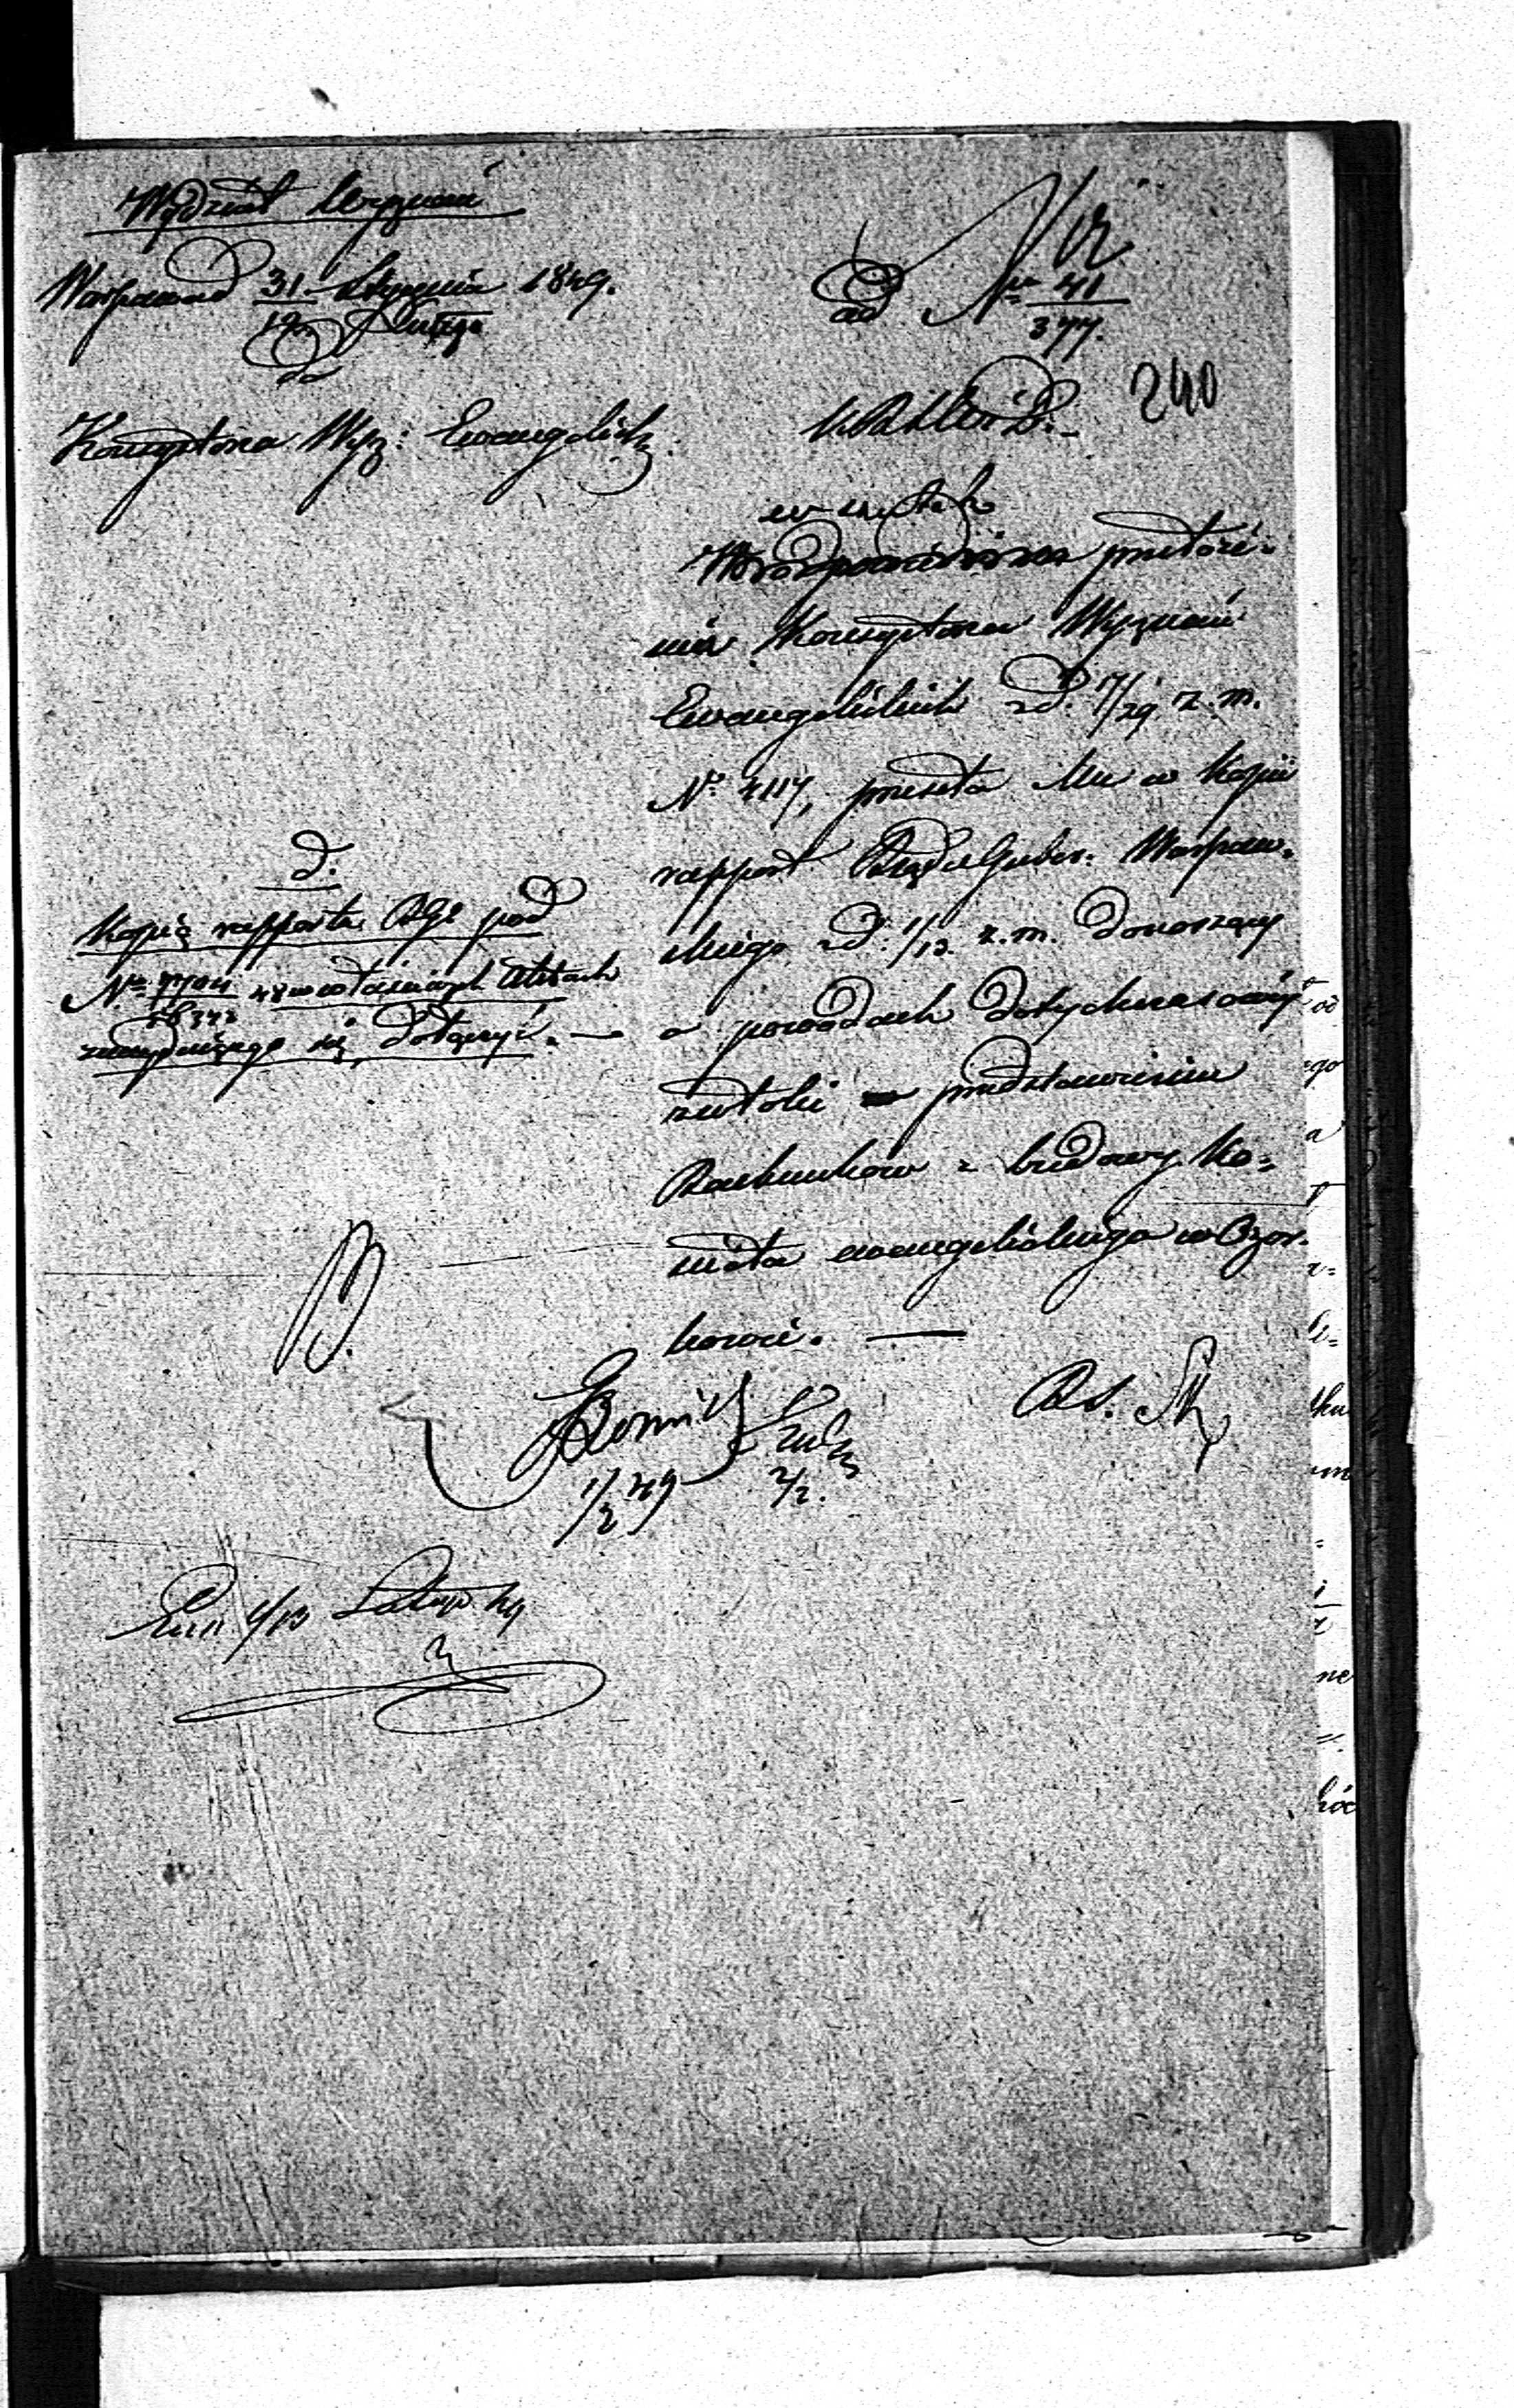 Wydział Wyznań
Warszawa 31 Stycznia 1849.
12 Lutego
do
Konsystorza Wyz: Ewangelick.
ad Nr 41
377.
240
w sku
przełoże-
nia Konsystorza Wyznań
Ewangelickich z d. 17/29 z. m.
No 4117, przesyła Mu w kopii
rapport Rządu Guber: Warszaw-
skiego z d: 1/13 z. m. donoszący
o powodach dotychczasowéj
zwłoki w przedstawieniu
Rachunków z budowy Ko-
ścioła ewangelickiego w Ozor-
kowie. —
d.
Kopią rapportu RGo pod
No 7704 48 w właściwych Aktach
znajdującego się, dołączyć. —
1/2 49
2/2.
4/13 Lutego 49